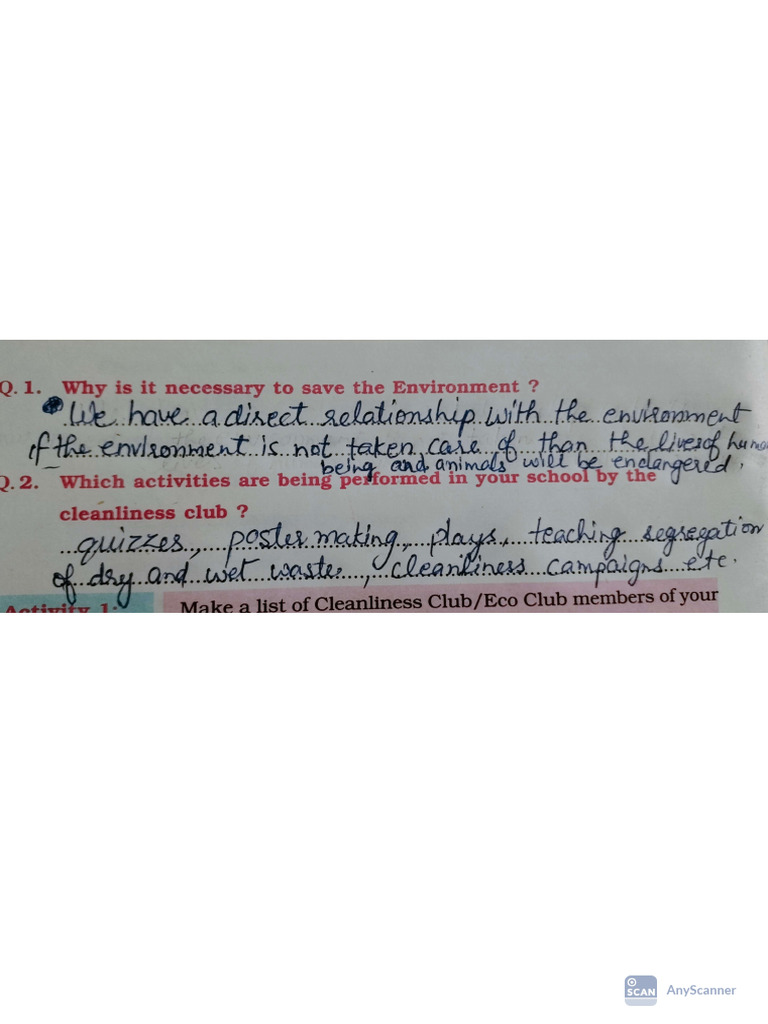 Q. 1. Why is it necessary to save the Environment ?
We have a direct relationship with the environment
if the environment is not taken care of than the lives of human
being and animals will be endangered.
Q. 2. Which activities are being performed in your school by the
cleanliness club ?
quizzes, poster making, plays, teaching segregation
of dry and wet waste, cleanliness campaigns etc.
Activity 1: Make a list of Cleanliness Club/Eco Club members of your
SCAN AnyScanner